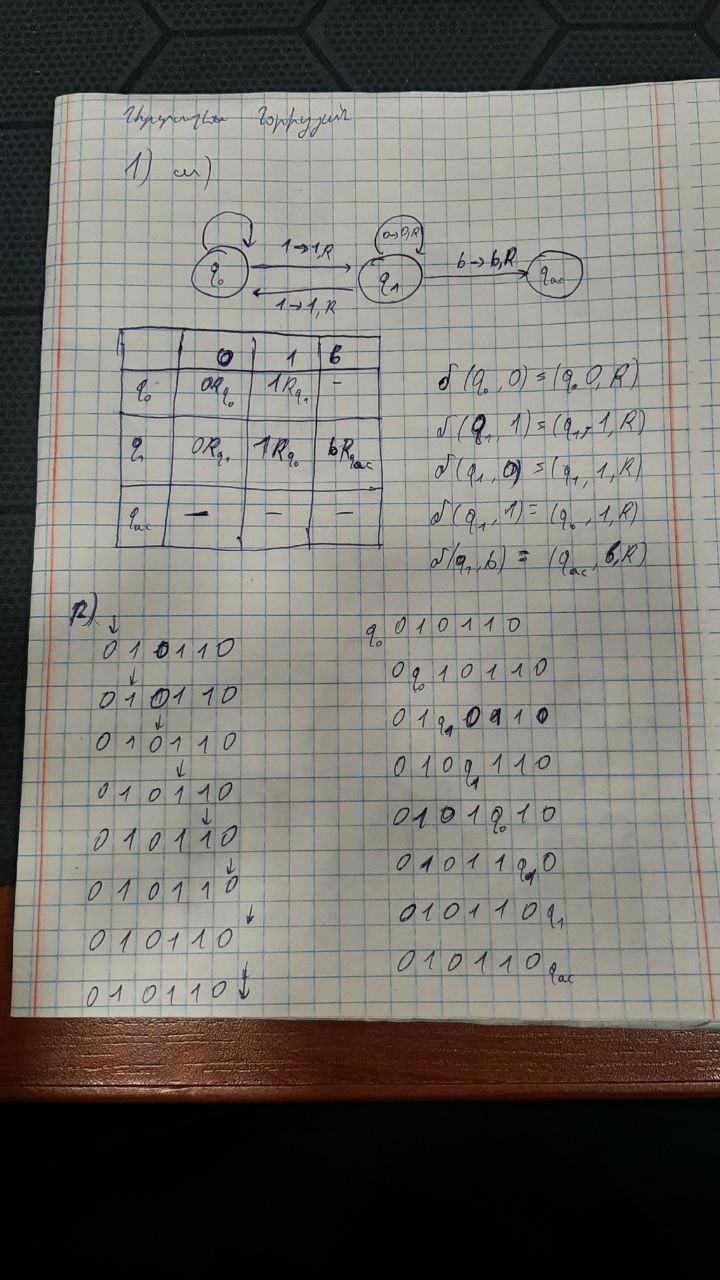 1) ա)
1→1,R
0→0,R
b→b,R
q₀
q₁
qₐc
1→1,R
0 1 b
q₀ 0Rq₀ 1Rq₁ -
q₁ 0Rq₁ 1Rq₀ bRqₐc
qₐc - - -
δ(q₀, 0) = (q₀ 0, R)
δ(q₁, 1) = (q₁, 1, R)
δ(q₁, 0) = (q₁, 1, R)
δ(q₁, 1) = (q₀, 1, R)
δ(q₁, b) = (qₐc, b, R)
↓
0 1 0 1 1 0
↓
0 1 0 1 1 0
↓
0 1 0 1 1 0
↓
0 1 0 1 1 0
↓
0 1 0 1 1 0
↓
0 1 0 1 1 0
↓
0 1 0 1 1 0
↓
0 1 0 1 1 0
q₀ 0 1 0 1 1 0
0 q₀ 1 0 1 1 0
0 1 q₁ 0 1 1 0
0 1 0 q₁ 1 1 0
0 1 0 1 q₀ 1 0
0 1 0 1 1 q₁ 0
0 1 0 1 1 0 q₁
0 1 0 1 1 0 qₐc